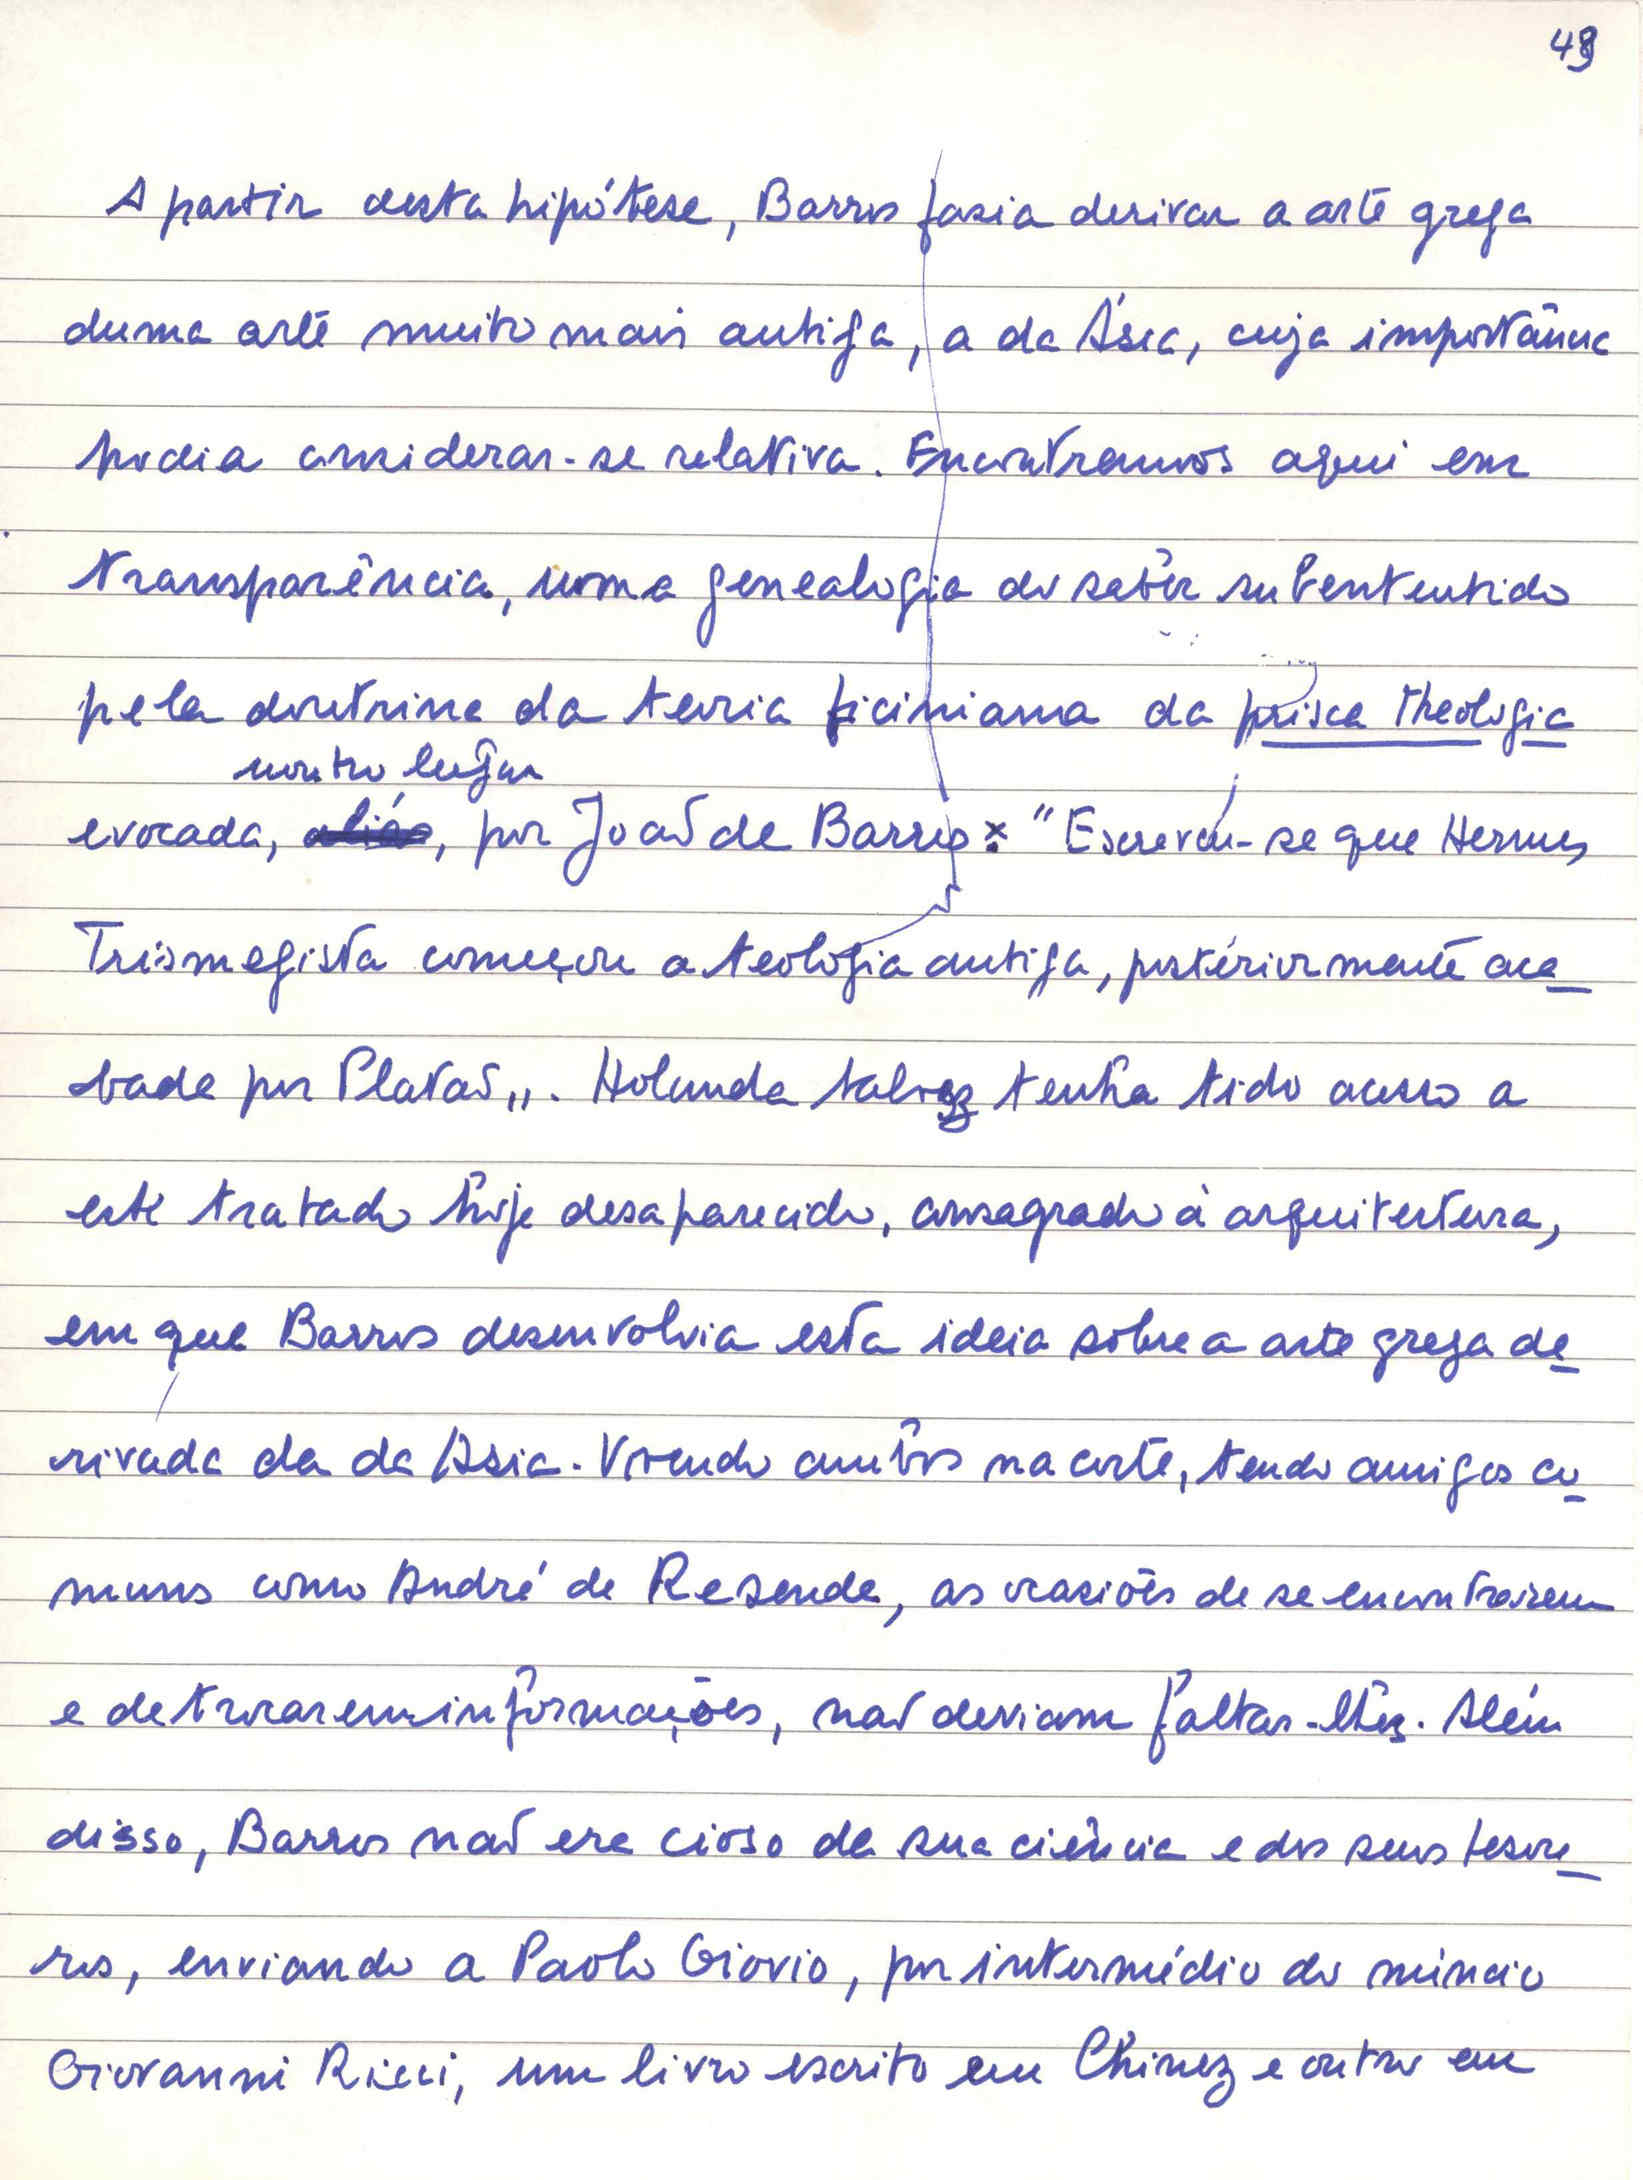 49
A partir desta hipótese, Barros fazia derivar a arte grega
duma arte muito mais antiga, a da Ásia, cuja importância
podia considerar-se relativa. Encontramos aqui em
transparência, uma genealogia do saber subentendido
pela doutrina da teoria ficiniana da prisca theologia
noutro lugar
evocada, aliás, por João de Barros: "Escreveu-se que Hermes
Trismegista começou a teologia antiga, posteriormente aca
bada por Platão". Holanda talvez tenha tido acesso a
este tratado hoje desaparecido, consagrado à arquitectura,
em que Barros desenvolvia esta ideia sobre a arte grega de
rivada da da Ásia. Vivendo ambos na corte, tendo amigos co
muns como André de Resende, as ocasiões de se encontrarem
e de trocarem informações, não deviam faltar-lhes. Além
disso, Barros não era cioso da sua ciência e dos seus tesou
ros, enviando a Paolo Giovio, por intermédio do núncio
Giovanni Ricci, um livro escrito em Chinez e outro em